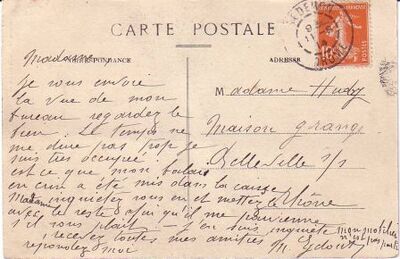 CARTE POSTALE
CORRESPONDANCE
ADRESSE
Madame
je vous envoie
la vue de mon
bureau regardez le
bien. Le temps ne
me dure pas trop je
suis très occupée.
est ce que mon
en crin a été mis dans la caisse
inquietez vous en et mettez le
avec le reste afin qu'il me parvienne
s'il vous plait — j'en suis inquiète
recevez toutes mes amitiés
repondez moi
mon mobilier
n'est pas parti
Madame Hudy
Maison Grange
Belleville s/s
Rhône
10
RHONE